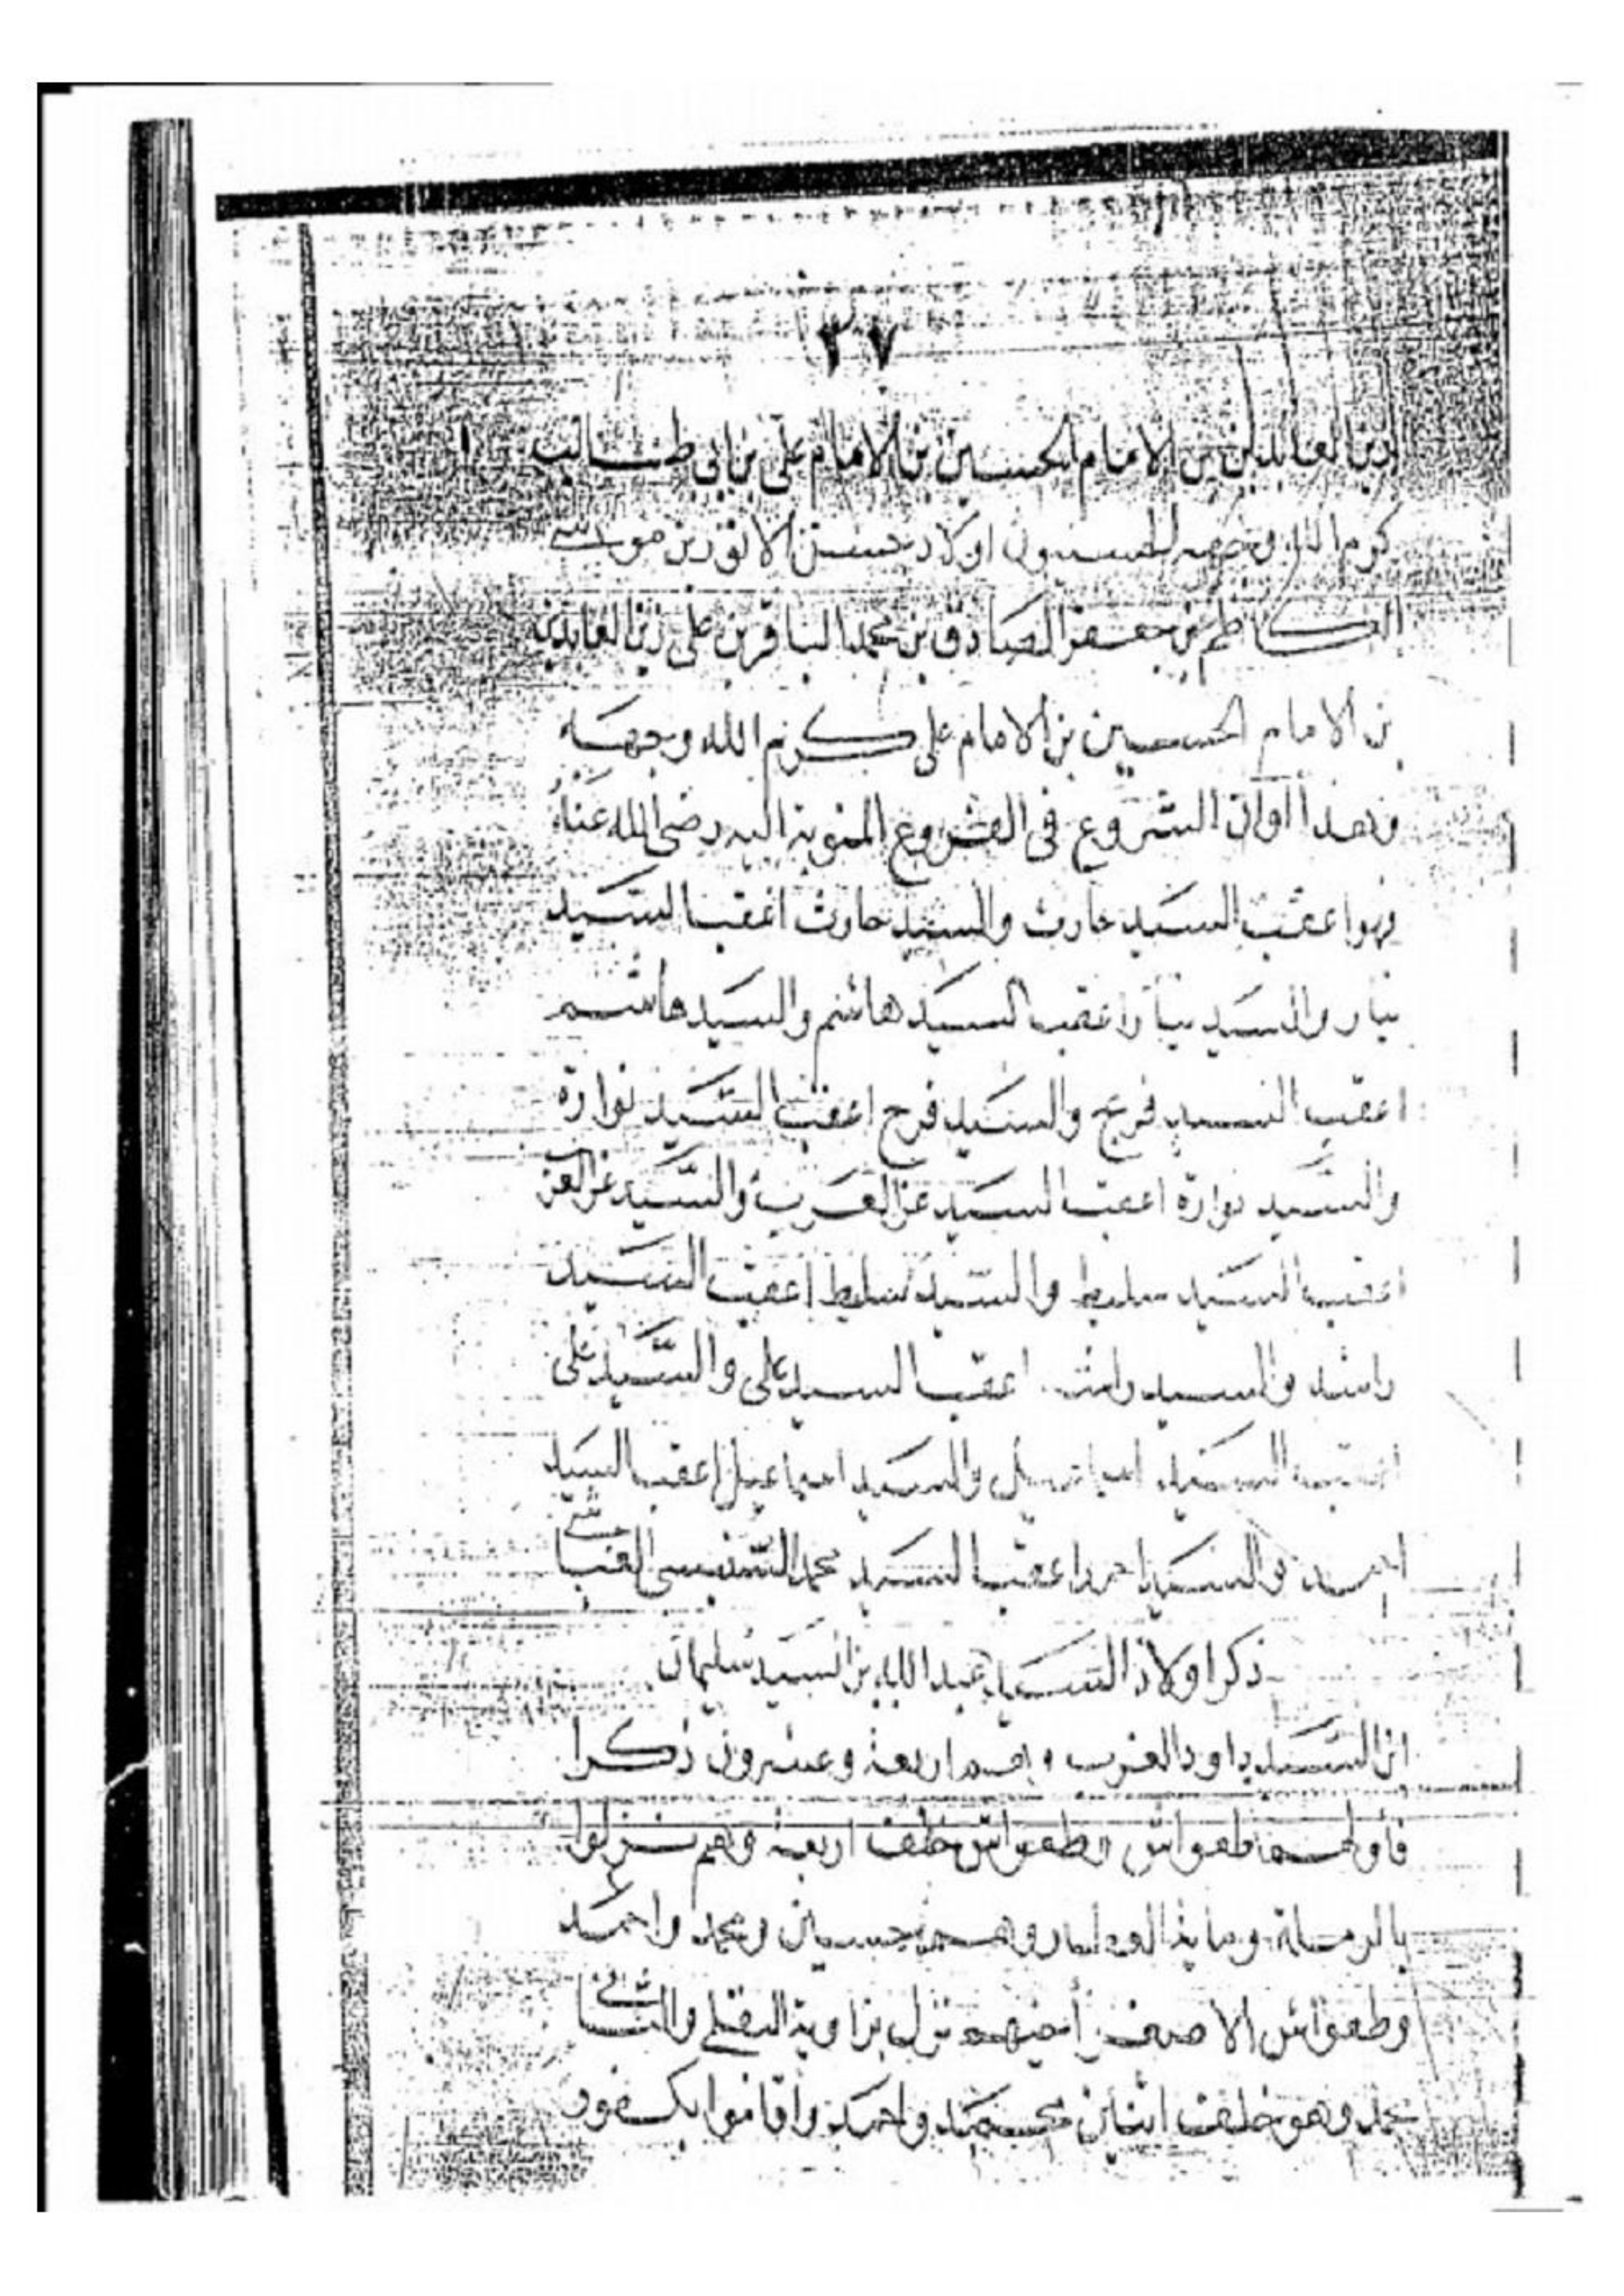 ٣٧
زين العابدين بن الامام الحسين بن الامام على بن ابى طالب
كرم الله وجهه الحسنيون اولاد حسن الانور بن موسى
الكاظم بن جعفر الصادق بن محمد الباقر بن على زين العابدين
بن الامام الحسين بن الامام على كرم الله وجهه
وهذا أوان الشروع فى الفروع المنوبة اليه رضى الله عنه
فهو اعقب السيد حارث والسيد حارث اعقب السيد
نيار والسيد نيار اعقب السيد هاشم والسيد هاشم
اعقب السيد فرج والسيد فرج اعقب السيد نوارة
والسيد نوارة اعقب السيد عز العرب والسيد عز العرب
اعقب السيد سليط والسيد سليط اعقب السيد
راشد والسيد راشد اعقب السيد على والسيد على
اعقب السيد اسماعيل والسيد اسماعيل اعقب السيد
احمد والسيد احمد اعقب السيد محمد
ذكر اولاد السيد عبد الله بن السيد سليمان
ابن السيد داود العزب وهم اربعة وعشرون ذكرا
فأولهم طعواش وطعواش خلف اربعة وهم نزلوا
بالرملة وهم حسين ومحمد واحمد
وطعواش الاصغر نزل بزاوية البقلى والثانى
محمد وهو خلف اثنين محمد واحمد واقاموا بكفور